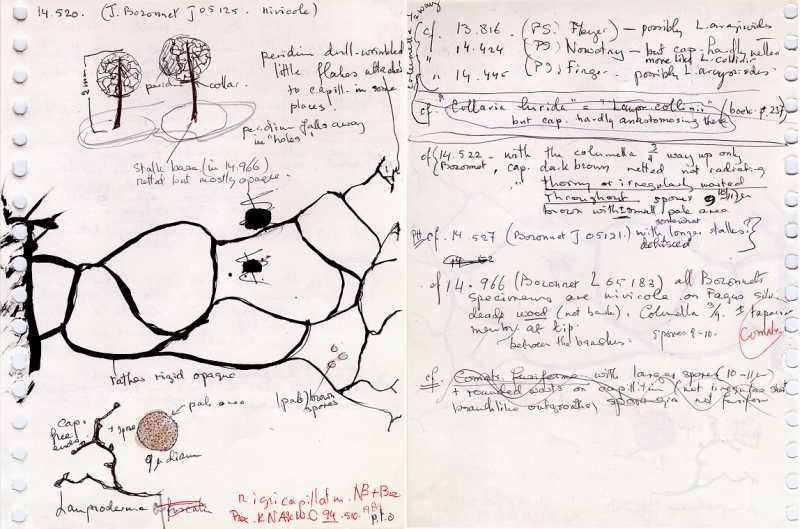 14.520. (J. Bozonnet J 05125. nivicole)
2mm
peridium
collar
peridium dull-wrinkled
little flakes attached
to capill. in some
places!
peridium falls away
in "holes"
stalk base (in 14.966)
netted but mostly opaque.
rather rigid opaque
(pale) brown
spores
cap.
free
ends
+ spore
pale area
9 µ diam
Lamproderma
nigricapillatum. NB + Boz
Proc. K NAk W. C 94. 510. 1981
p.t.o
columella
cf. 13.816. (PS. Meyer) – possibly L. arcyrioides
" 14.424 (PS) Nowotny – but cap. hardly netted
more like L. collin.
" 14.445 (PS) Finger. possibly L. arcyrioides.
cf. "Collaria lurida" = "Lampr. collinii" (book p. 237)
but cap. hardly anastomosing there
cf 14.522 – with the columella 3/4 way up only
Bozonnet, cap. dark brown netted not radiating
thorny or irregularly warted
throughout spores 9 10(-11) µm
brown with small pale area
cf. 14.527 (Bozonnet J 05121.) with somewhat longer stalks?
dehisced
cf 14.966 (Bozonnet L 65183) all Bozonnet's
specimens are nivicole on Fagus silv.
dead wood (not bark). Columella 3/4. ± tapering
membr. at tip.
between the branches. spores 9-10.
Comatr.
cf. Comatr. fusiforme with larger spores (10-11 µ)
+ rounded warts on capillitium (not irregular short
branchlike outgrowths) sporangia not fusiform